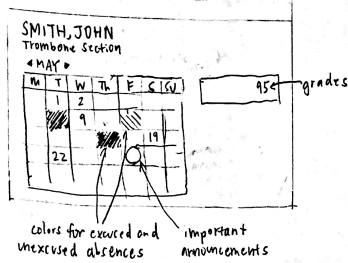 SMITH, JOHN
Trombone Section
◀ MAY ▶
M T W Th F S SU
1 2
9
19
22
95
grades
colors for excused and
unexcused absences
important
announcements